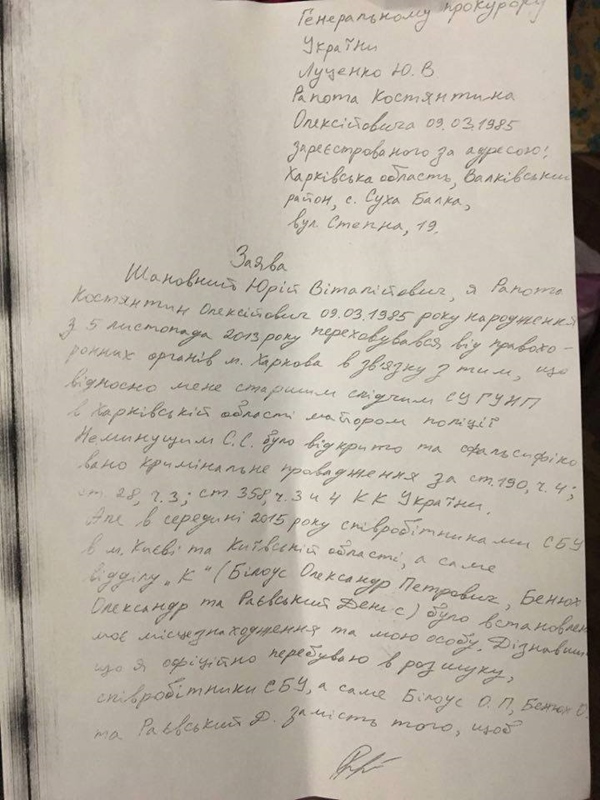 Генеральному прокурору
України
Луценко Ю. В
Рапота Костянтина
Олексійовича 09.03.1985
зареєстрованого за адресою:
Харківська область, Валківський
район, с. Суха Балка,
вул. Степна, 19.
Заява
Шановний Юрій Віталійович, я Рапота
Костянтин Олексійович 09.03.1985 року народження
з 5 листопада 2013 року переховувався від правохо-
ронних органів м. Харкова в зв'язку з тим, що
відносно мене старшим слідчим СУ ГУНП
в Харківській області майором поліції
Неминущим С.С. було відкрито та фальсифіко
вано кримінальне провадження за ст. 190, ч. 4;
ст. 28, ч. 3; ст 358, ч. 3 и 4 КК України.
Але в середині 2015 року співробітниками СБУ
в м. Києві та Київській області, а саме
відділу "К" (Білоус Олександр Петрович, Бенюх
Олександр та Раєвський Денис) було встановлен
моє місцезнаходження та мою особу. Дізнавши
що я офіційно перебуваю в розшуку,
співробітники СБУ, а саме Білоус О. П, Бенюх О.
та Раєвський Д. замість того, щоб